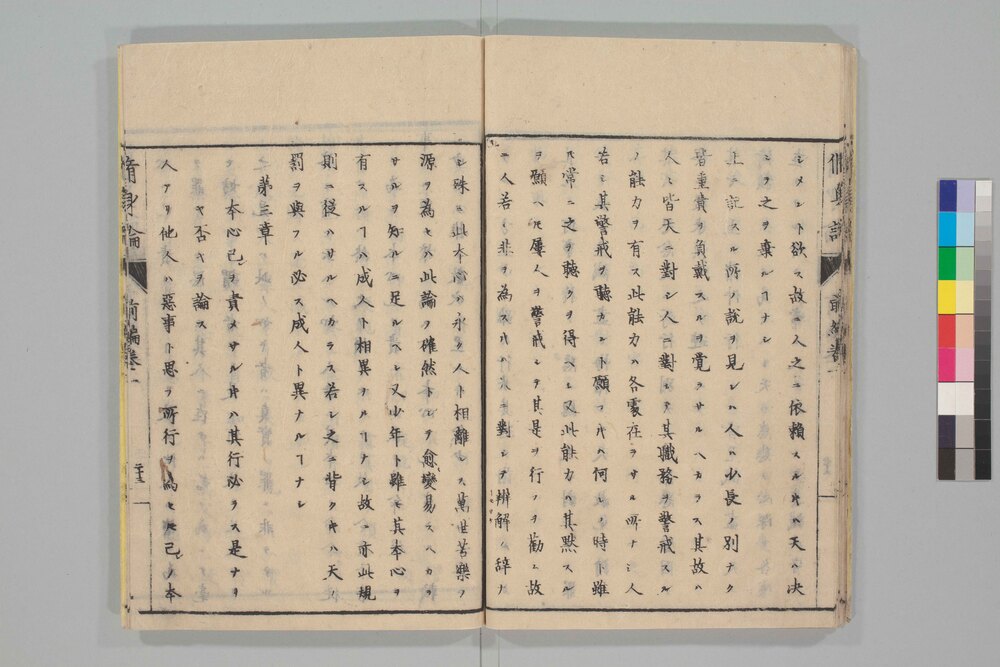 シメント欲ス故ニ人之ニ依賴スル𪜈ハ天ハ决
シヲ之ヲ棄ルヿナシ
上ニ説スル所ノ說ヲ見レハ人ハ少長ノ別ナク
皆重責ヲ負戴スルヲ覺ラサルヘカラス其故ハ
人ハ皆天ニ對シ人ニ對シテ其職務ヲ警戒スル
ノ能力ヲ有ス此能力ハ各處在ヲサル所ナシ人
若シ其警戒ヲ聽カント願フ𪜈ハ何レノ時ト雖
モ常ニ之ヲ聽クヲ得ヘシ又此能力ハ其默スル
ヲ願ヘ𪜈屢人ヲ警戒シテ其是ヲ行フヲ勸ム故
ニ人若シ非ヲ為ス𪜈ハ天ニ對シテ辨解ノ辞ナ
シ殊ニ此本心ハ永ク人ト相離レス萬世苦樂ノ
源ヲ為セハ此論ヲ確然トシテ愈變易スヘカラ
サルヲ知ルニ足ルヘシ又少年ト雖モ其本心ヲ
有スルヿハ成人ト相異ナルヿナシ故ニ亦此規
則ニ從ハサルヘカラス若シ之ニ背ク𪜈ハ天ノ
罰ヲ與フル必ス成人ト異ナルヿナシ
第三章
本心己ヲ責メサル𪜈ハ其行必ラス是ナ
リヤ否ヤヲ論ス
人アリ他人ハ惡事ト思フ所行ヲ為セ𪜈己ノ本
脩身論 前編卷一